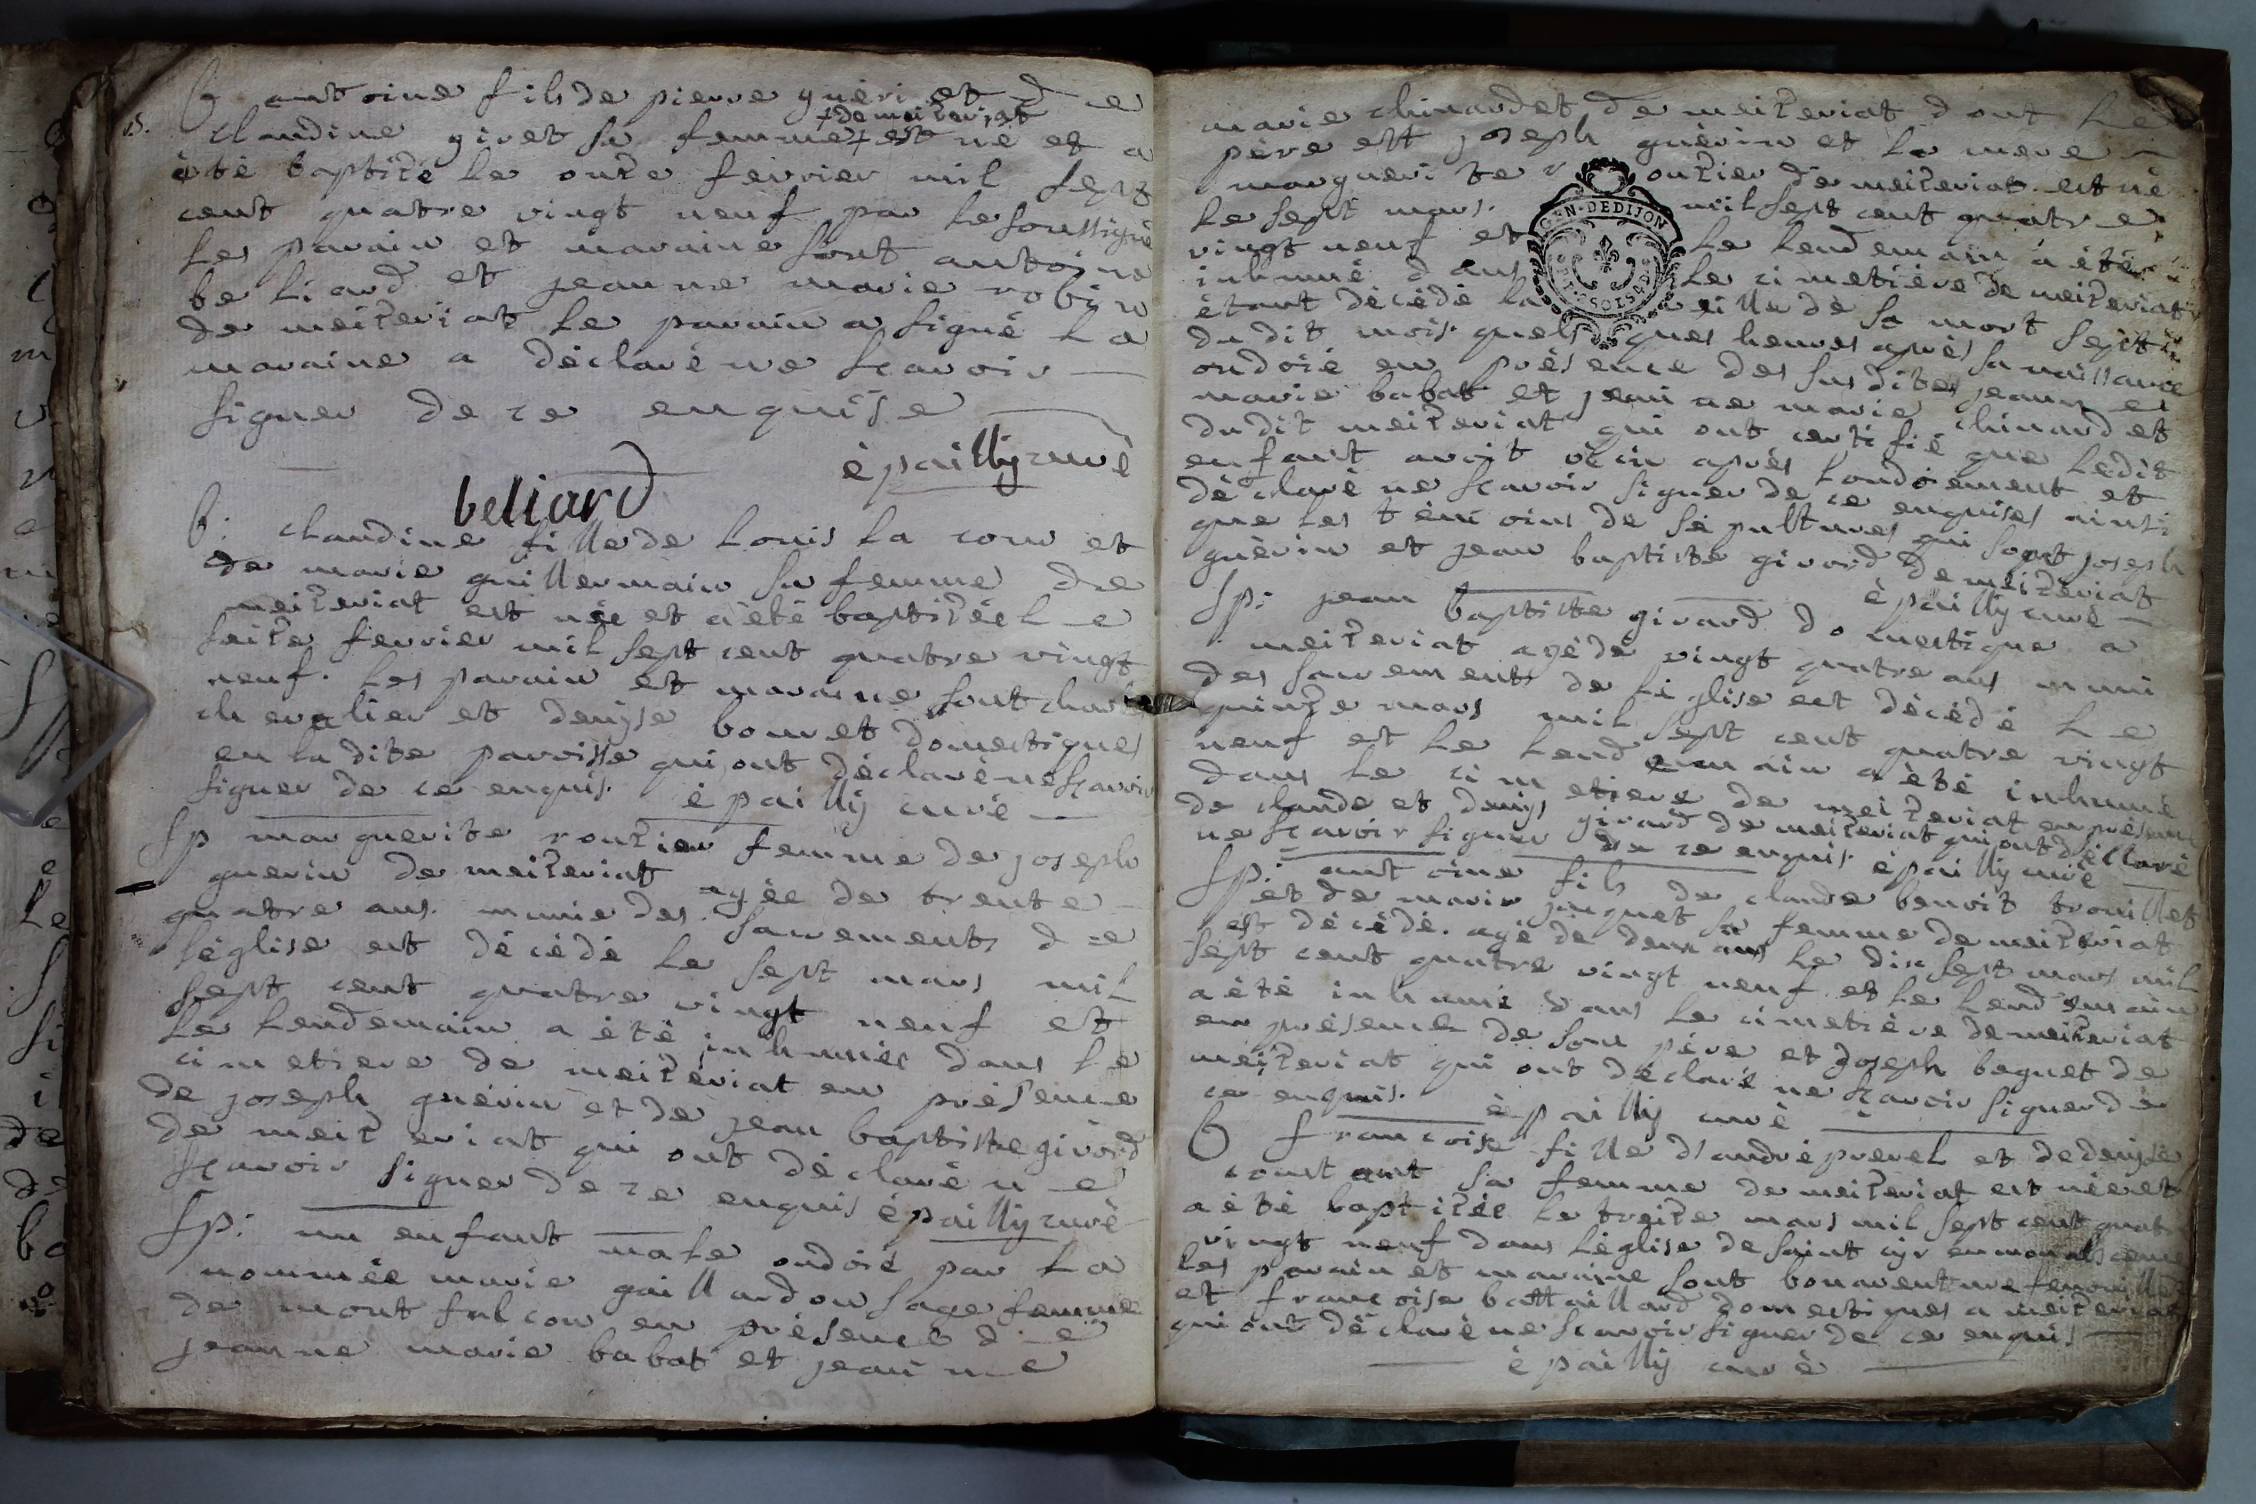 B antoine fils de pierre guéri et de
claudine givet sa femme + est né et a
+ de meizeriat
été baptizé le onze fevrier mil sept
cent quatre vingt neuf par le soussigné
les parain et maraine sont antoine
beliard et jeanne marie robin
de meizeriat le parain a signé la
maraine a déclaré ne sçavoir
signer de ce enquise
épailly curé
beliard
B: claudine fille de louis la cour et
de marie guillermain sa femme de
meizeriat est née et a été baptizée le
seize fevrier mil sept cent quatre vingt
neuf. les parain et maraine sont
chevalier et denyse bonnet domestiques
en la dite paroisse qui ont déclaré ne sçavoir
signer de ce enquis. épailly curé
Sp marguerite rouzier femme de joseph
guerin de meizeriat agée de trente
quatre ans. munie des sacrements de
léglise est décédé le sept mars mil
sept cent quatre vingt neuf et
le lendemain a été inhumée dans le
cimetiere de meizériat en présence
de joseph guérin et de jean baptiste girord
de meizeriat qui ont déclaré ne
sçavoir signer de ce enquis épailly curé
Sp: un enfant male ondoié par la
nommée marie gaillardon sage femme
de mont falcon en présence de
jeanne marie babat et jeanne
marie chinardet de meizeriat dont le
père est joseph guérin et la mere
marguerite rouzier de meizeriat est né
le sept mars. mil sept cent quatre
vingt neuf et le lendemain a été
inhumé dans le cimetière de meizeriat
étant décédé la veille de sa mort sept
du dit mois. quelques heures après sa naissance
ondoié en présence des susdites jeanne
marie babat et jeanne marie chinardet
du dit meizeriat qui ont certifié que ledit
enfant avoit vécu après londoiement et
déclaré ne sçavoir signer de ce enquises ainsi
que les témoins de sépultures qui sont joseph
guérin et jean baptiste girord de meizeriat
épailly curé
Sp: jean baptiste girard domestique a
meizeriat agé de vingt quatre ans muni
des sacrements de léglise est décédé le
quinze mars mil sept cent quatre vingt
neuf et le lendemain a été inhumé
dans le cimetiere de meizeriat en présence
de claude et denys girard de meizeriat qui ont déclaré
ne sçavoir signer de ce enquis. épailly curé
Sp: antoine fils de claude benoit trouillet
et de marie juguet sa femme de meizeriat
est décédé. agé de deux ans le dix sept mars mil
sept cent quatre vingt neuf et le lendemain
a été inhumé dans le cimetière de meizeriat
en présence de son père et joseph beguet de
meizeriat qui ont déclaré ne sçavoir signer de
ce enquis. épailly curé
B françoise fille d'andré prevel et de denyse
constant sa femme de meizeriat est née et
a été baptizée le treize mars mil sept cent quatre
vingt neuf dans léglise de saint cyr en mon absence
les parain et maraine sont bonaventure
et françoise battaillard domestiques a meizeriat
qui ont déclaré ne sçavoir signer de ce enquis
épailly curé
GEN·DEDIJON